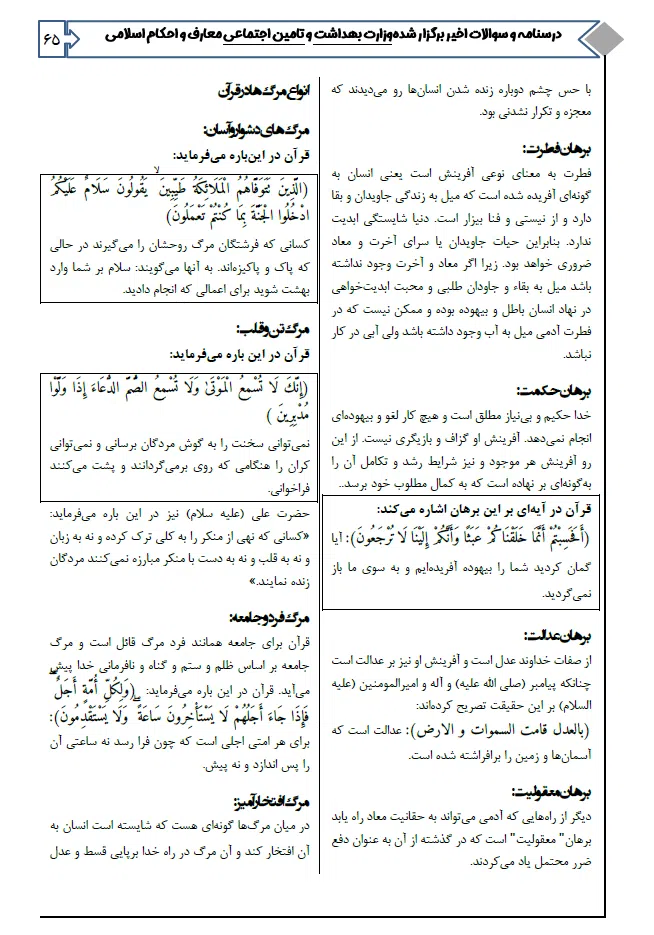 درسنامه و سوالات اخیر برگزار شده وزارت بهداشت و تامین اجتماعی معارف و احکام اسلامی
۶۵
با حس چشم دوباره زنده شدن انسان‌ها رو می‌دیدند که
معجزه و تکرار نشدنی بود.
برهان فطرت:
فطرت به معنای نوعی آفرینش است یعنی انسان به
گونه‌ای آفریده شده است که میل به زندگی جاویدان و بقا
دارد و از نیستی و فنا بیزار است. دنیا شایستگی ابدیت
ندارد. بنابراین حیات جاویدان یا سرای آخرت و معاد
ضروری خواهد بود. زیرا اگر معاد و آخرت وجود نداشته
باشد میل به بقاء و جاودان طلبی و محبت ابدیت‌خواهی
در نهاد انسان باطل و بیهوده بوده و ممکن نیست که در
فطرت آدمی میل به آب وجود داشته باشد ولی آبی در کار
نباشد.
برهان حکمت:
خدا حکیم و بی‌نیاز مطلق است و هیچ کار لغو و بیهوده‌ای
انجام نمی‌دهد. آفرینش او گزاف و بازیگری نیست. از این
رو آفرینش هر موجود و نیز شرایط رشد و تکامل آن را
به‌گونه‌ای بر نهاده است که به کمال مطلوب خود برسد..
قرآن در آیه‌ای بر این برهان اشاره می‌کند:
(أَفَحَسِبْتُمْ أَنَّمَا خَلَقْنَاكُمْ عَبَثًا وَأَنَّكُمْ إِلَيْنَا لَا تُرْجَعُونَ): آیا
گمان کردید شما را بیهوده آفریده‌ایم و به سوی ما باز
نمی‌گردید.
برهان عدالت:
از صفات خداوند عدل است و آفرینش او نیز بر عدالت است
چنانکه پیامبر (صلی الله علیه) و آله و امیرالمومنین (علیه
السلام) بر این حقیقت تصریح کرده‌اند:
(بالعدل قامت السموات و الارض): عدالت است که
آسمان‌ها و زمین را برافراشته شده است.
برهان معقولیت:
دیگر از راه‌هایی که آدمی می‌تواند به حقانیت معاد راه یابد
برهان" معقولیت" است که در گذشته از آن به عنوان دفع
ضرر محتمل یاد می‌کردند.
انواع مرگ‌ها در قرآن
مرگ‌های دشوار و آسان:
قرآن در این‌باره می‌فرماید:
(الَّذِينَ تَتَوَفَّاهُمُ الْمَلَائِكَةُ طَيِّبِينَ ۙ يَقُولُونَ سَلَامٌ عَلَيْكُمُ
ادْخُلُوا الْجَنَّةَ بِمَا كُنْتُمْ تَعْمَلُونَ)
کسانی که فرشتگان مرگ روحشان را می‌گیرند در حالی
که پاک و پاکیزه‌اند. به آنها می‌گویند: سلام بر شما وارد
بهشت شوید برای اعمالی که انجام دادید.
مرگ تن و قلب:
قرآن در این باره می‌فرماید:
(إِنَّكَ لَا تُسْمِعُ الْمَوْتَىٰ وَلَا تُسْمِعُ الصُّمَّ الدُّعَاءَ إِذَا وَلَّوْا
مُدْبِرِينَ )
نمی‌توانی سخنت را به گوش مردگان برسانی و نمی‌توانی
کران را هنگامی که روی برمی‌گردانند و پشت می‌کنند
فراخوانی.
حضرت علی (علیه سلام) نیز در این باره می‌فرماید:
«کسانی که نهی از منکر را به کلی ترک کرده و نه به زبان
و نه به قلب و نه به دست با منکر مبارزه نمی‌کنند مردگان
زنده نمایند.»
مرگ فرد و جامعه:
قرآن برای جامعه همانند فرد مرگ قائل است و مرگ
جامعه بر اساس ظلم و ستم و گناه و نافرمانی خدا پیش
می‌آید. قرآن در این باره می‌فرماید: (وَلِكُلِّ أُمَّةٍ أَجَلٌ ۖ
فَإِذَا جَاءَ أَجَلُهُمْ لَا يَسْتَأْخِرُونَ سَاعَةً ۖ وَلَا يَسْتَقْدِمُونَ):
برای هر امتی اجلی است که چون فرا رسد نه ساعتی آن
را پس اندازد و نه پیش.
مرگ افتخار آمیز:
در میان مرگ‌ها گونه‌ای هست که شایسته است انسان به
آن افتخار کند و آن مرگ در راه خدا برپایی قسط و عدل